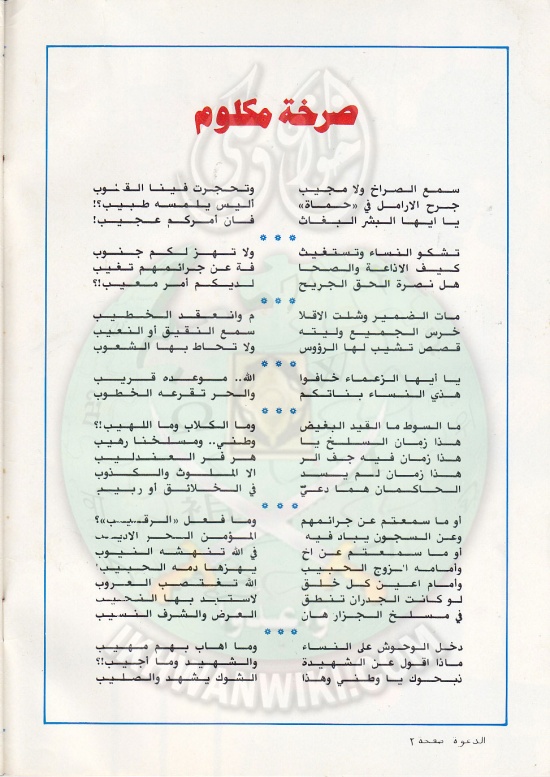 صرخة مكلوم
سمع الصراخ ولا مجيب وتحجرت فينا القلوب
جرح الارامل في «حماة» أليس يلمسه طبيب؟!
يا ايها البشر البغاث فان أمركم عجيب!
* * *
تشكو النساء وتستغيث ولا تهز لكم جنوب
كيف الاذاعة والصحا فة عن جرائمهم تغيب
هل نصرة الحق الجريح لديكم أمر معيب؟!
* * *
مات الضمير وشلت الاقلا م وانعقد الخطيب
خرس الجميع وليته سمع النقيق أو النعيب
قصص تشيب لها الرؤوس ولا تحاط بها الشعوب
* * *
يا أيها الزعماء خافوا الله.. موعده قريب
هذي النساء بناتكم والحر تقرعه الخطوب
* * *
ما السوط ما القيد البغيض وما الكلاب وما اللهيب!؟
هذا زمان السلخ يا وطني.. ومسلخنا رهيب
هذا زمان فيه جف الر هر فر العندليب
هذا زمان لم يسد الا الملوث والكذوب
الحاكمان هما دعيّ في الخلائق أو ربيب
* * *
أو ما سمعتم عن جرائمهم وما فعل «الرقيب»؟
وعن السجون يباد فيه المؤمن الحر الاديب
أو ما سمعتم عن اخ في الله تنهشه النيوب
وأمامه الزوج الحبيب يهزها دمه الحبيب
وأمام اعين كل خلق الله تنتهك العروب
لو كانت الجدران تنطق لاستبد بها النحيب
في مسلخ الجزار هان العرض والشرف النسيب
* * *
دخل الوحوش على النساء وما اهاب بهم مهيب
ماذا اقول عن الشهيدة والشهيد وما أجيب!؟
نبحوك يا وطني وهذا الشوك يشهد والصليب
الدعوة صفحة ٢
IKHWANWIKI.COM